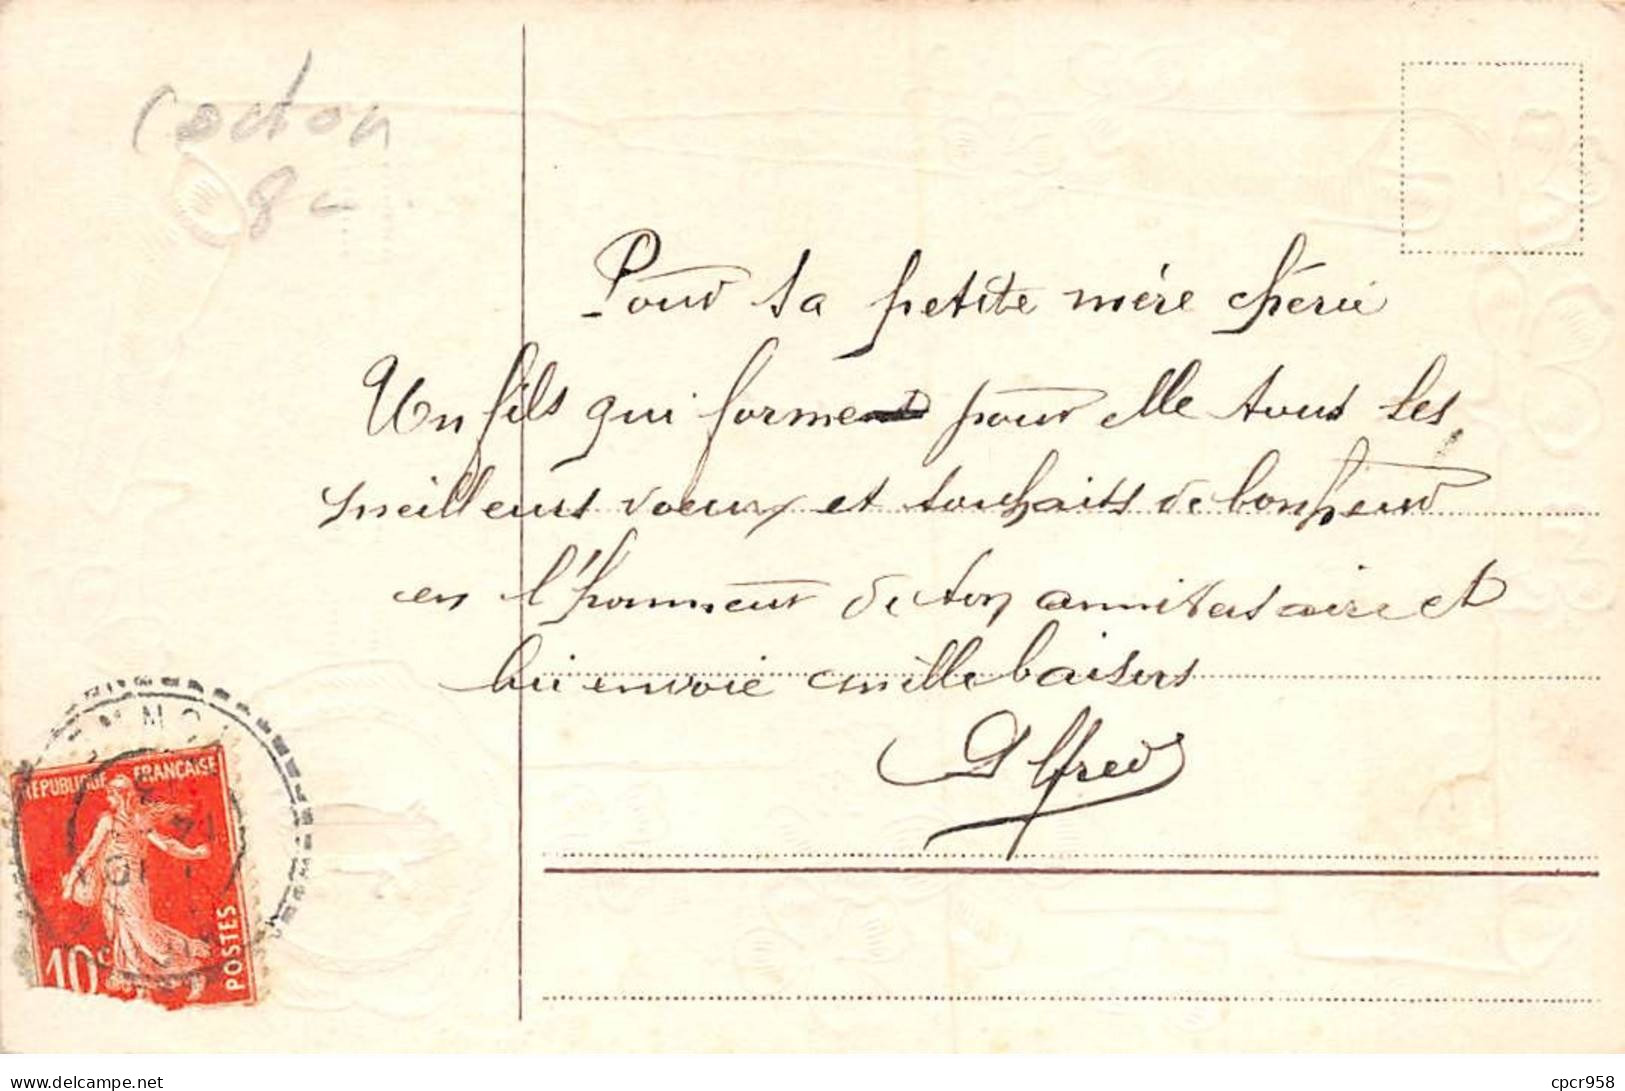 carton
8-
Pour sa petite mère chérie
Un fils qui forme pour elle tous les
meilleurs voeux et souhaits de bonheur
en l'honneur de ton anniversaire et
lui envoie mille baisers
Alfred
RÉPUBLIQUE FRANÇAISE
10c
POSTES
www.delcampe.net
cpcr958